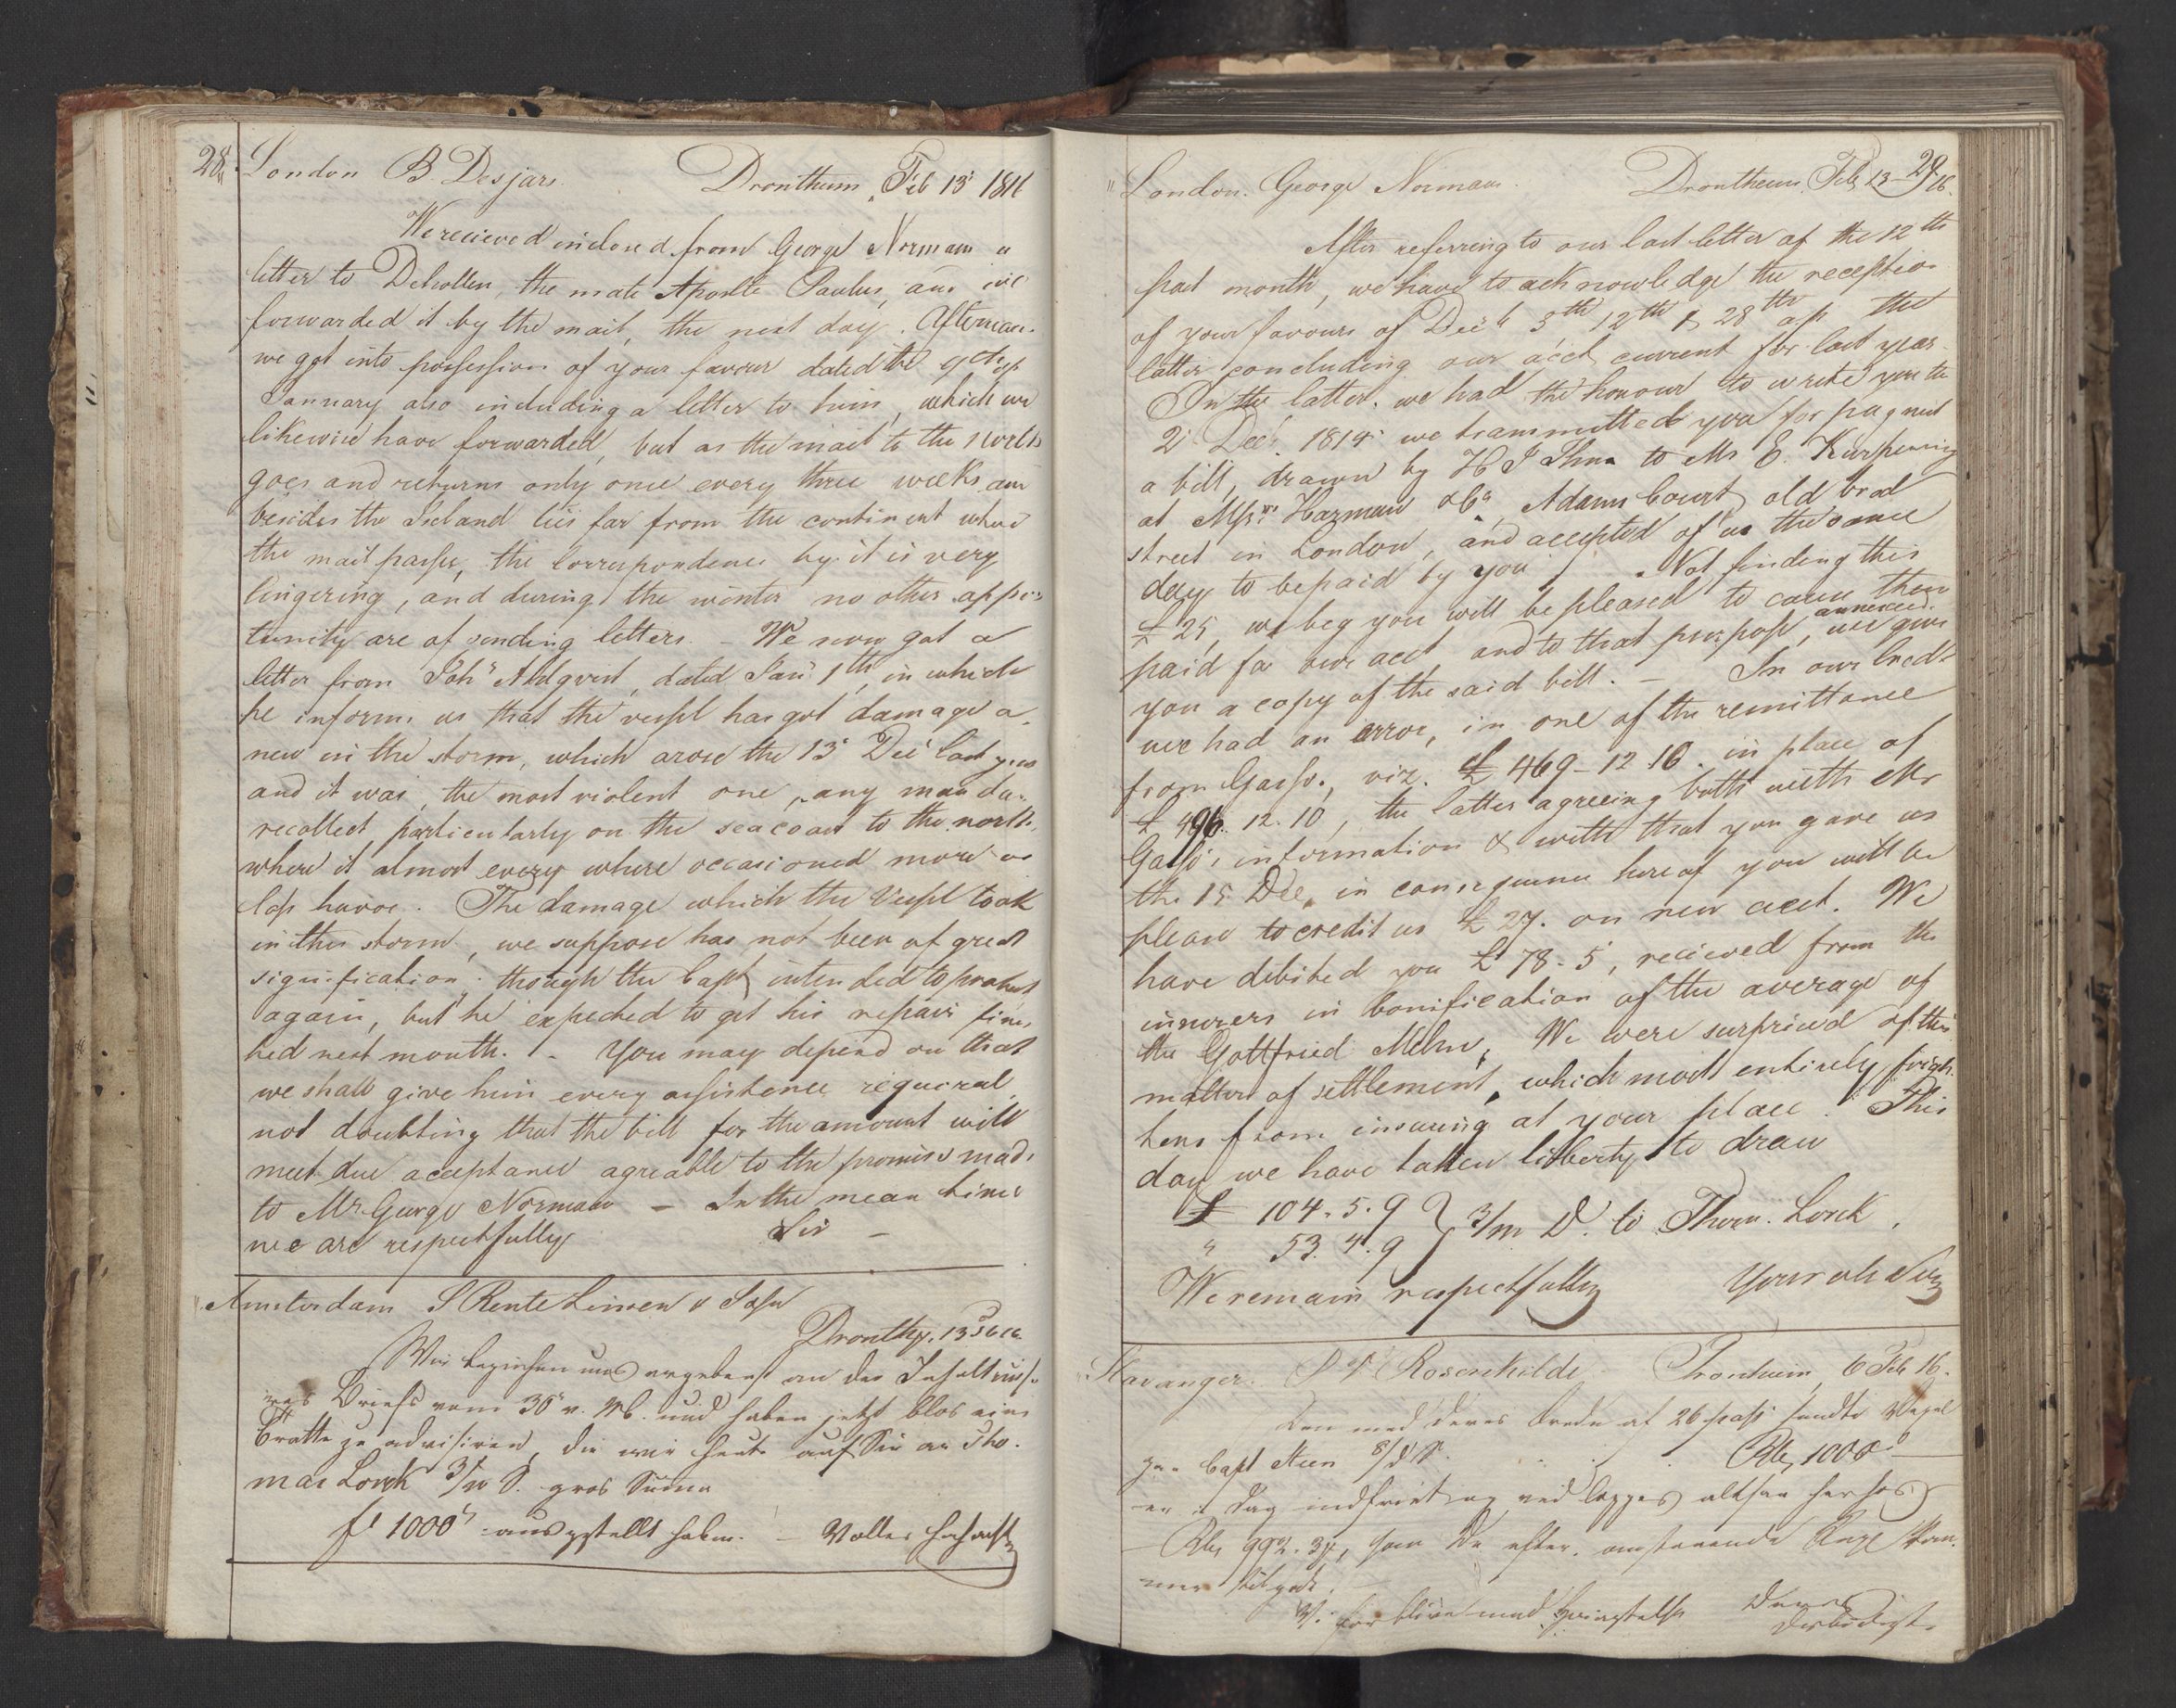 28.
London B Desjars. Drontheim, Feb 13 1816
We recieved inclosed from George Norman a
letter to the mate Apostle Paulus, and we
forwarded it by the mail, the next day.
we got into possession of your favour dated the
January also including a letter to him, which we
likewise have forwarded, but as the mail to the north
goes and returns only once every three weeks and
besides the Iseland lies far from the continent where
the mail passes, the correspondence by it is very
lingering, and during the winter no other oppor
tunity are of sending letters. – We now got a
letter from Joh Ahlqvist, dated Jan 1th, in which
he informs us that the vessel has got damage a
new in the storm, which arose the 13 Dec last year
and it was, the most violent one, any man
recollect particularly on the seacoast to the north.
where it almost every where occasioned more or
less havoc. The damage which the Vessel took
in this storm, we suppose has not been of great
signification. though the Capt intended to protest
again, but he expected to get his repairs finis
hed next month. – You may depend on that
we shall give him every assistence required,
not doubting that the bill for the amount will
meet due acceptance agreable to the promise made
to Mr George Norman – In the mean time
we are respectfully Sir –
Amsterdam S Rente Linsen & Sohn
Dronthj. 13 Feb 16.
Wir beziehen uns ergebenst an den Inhalt uns
res Briefs vom 30 v. M. und haben jetzt blos eine
Tratte zu advisiren, die wir heute auf Sie an Tho.
mas Lorck 3/m D. gros
fl 1000 ausgestellt haben. – Voller Hochacht
29
London. George Norman. Drontheim, Feb 13 16.
After referring to our last letter of the 12th
past month, we have to acknowledge the reception
of your favours of Decb 5th 12th & 28th the
latter concluding our acct current for last year.
In the latter, we had the honour to write you the
2 Dec. 1814 we transmitted you for payment
a bill, drawn by H J to Mr E.
at Mssrs Harman & Co, Adams Court old brod
street in London, and accepted of us the same
day to be paid by you Not finding this
£ 25, we beg you will be pleased to cause them
paid for our acct, and to that purpose, annexed we give
you a copy of the said bill. – In our Credt
we had an error, in one of the remittance
from Gasso., viz. £ 469-12.10. in place of
£ 496. 12.10, the latter agreeing both with Mr
Gasso's information & with that you gave us
the 15 Dec, in consequence hereof you will be
please to credit us £ 27. on new acct. We
have debited you £ 78-5, recieved from the
insurers in bonification of the average of
the Gottfried Mehn, We were surprised of this
matter of settlement, which most entirely frigh
tens from insuring at your place. This
day we have taken libberty to draw
£ 104.5.9
" 53.4.9 } 3/m D. to Thom. Lorck.
We remain respectfully Your ob Serv
Stavanger. P V Rosenkilde Tronhiem, 6 Feb 16.
Den med Deres ærede af 26 pass. sendte Vexel
paa Capt Steen 8/d D. . . . Rbs, 1000
er i Dag indfriet og vedlægges altsaa herhos
Rbs 992.34, som De efter
Vi forblive med Høiagtelse Deres